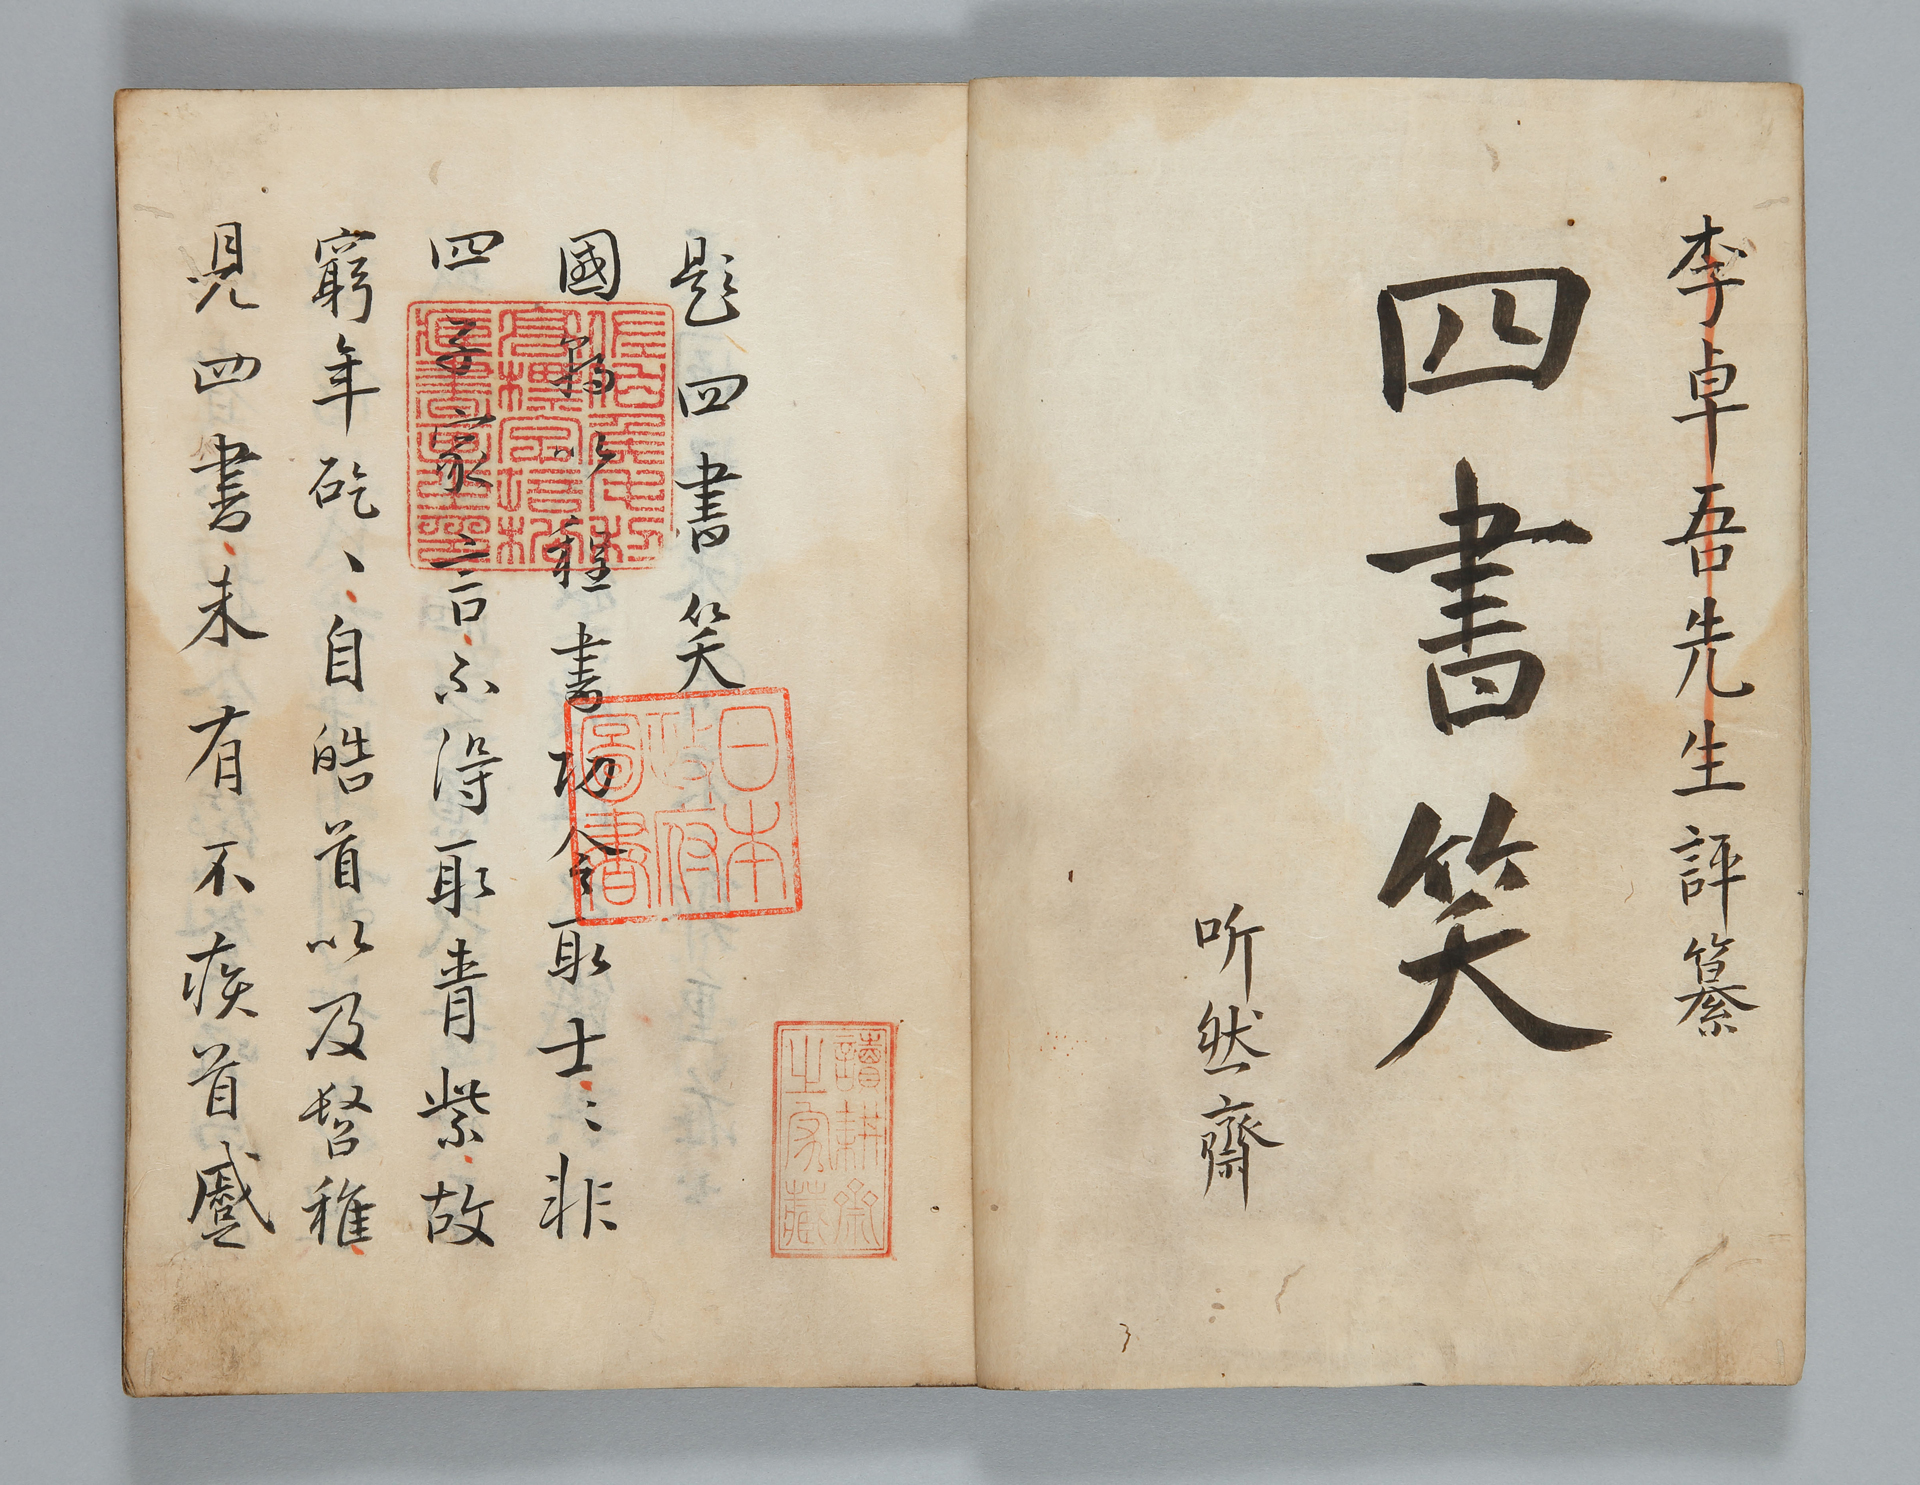 李卓吾先生評纂
四書笑
听然齋
題四書笑
國朝以程書功令取士〻非
四子家言不得取青紫故
窮年矻〻自皓首以及髫稚
見四書未有不疾首蹙
日本
政府
圖書
讀耕齋
之家藏